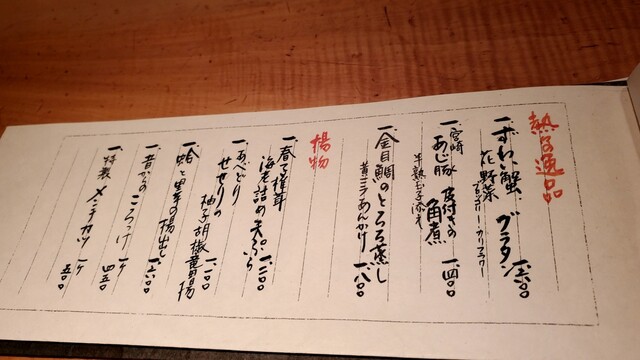 熱々逸品
一、ずわい蟹・グラタン 一六〇〇
花野菜 ブロッコリー・カリフラワー
一、宮崎 あじ豚 皮付きの角煮 一、四〇〇
半熟玉子添え
一、金目鯛のとろろ蒸し 一、八〇〇
黄ニラあんかけ
揚物
一、春子椎茸
海老詰め天ぷら 一二〇〇
一、あべどり
せせりの柚子胡椒竜田揚 一二〇〇
一、蛤と
の揚出し 一六〇〇
一、昔ながらのころっけ 一ケ 四五〇
一、特製メンチカツ 一ケ 五〇〇